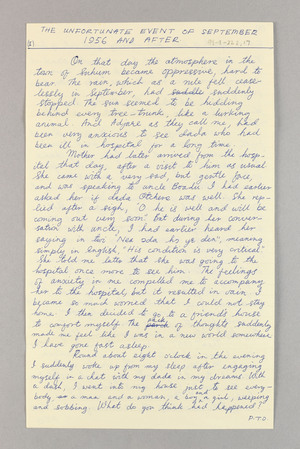 THE UNFORTUNATE EVENT OF SEPTEMBER
1956 AND AFTER
On that day the atmosphere in the
town of became oppressive, hard to
bear. The rain, which as a rule fell cease-
lessly in September, had suddenly
stopped. The sun seemed to be hiding
behind every tree-trunk, like a lurking
animal. And as they call me, had
been very anxious to see dada who had
been ill in hospital for a long time.
Mother had later arrived from the hosp-
ital that day, after a visit to him as usual.
She came with a very sad, but gentle face,
and was speaking to uncle I had earlier
asked her if dada was well. She rep-
lied after a sigh, "O he is well and will be
coming out very soon" but during her conver-
sation with uncle, I had earlier heard her
saying in "Ne ho ye den", meaning
simply in English, "His condition is very critical".
She told me later that she was going to the
hospital once more to see him. The feelings
of anxiety in me compelled me to accompany
her to the hospital, but it resulted in vain. I
became so much worried that I could not stay
home. I then decided to go to a friend's house
to comfort myself. The of thoughts suddenly
made me feel like I was in a new world somewhere.
I have gone fast asleep.
Round about eight o'clock in the evening
I suddenly woke up from my sleep after engaging
myself in a chat with my dada in my dreams. With
a dash, I went into my house just to see every-
body, a man and a woman, a boy and a girl, weeping
and sobbing. What do you think had happened?
P.T.O.